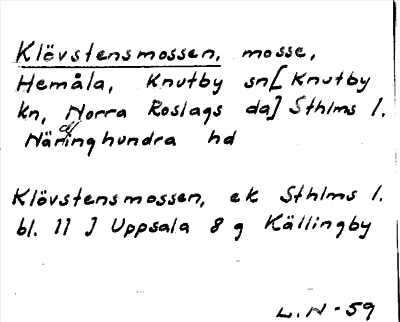 Klövstensmossen, mosse,
Hemåla, Knutby sn[Knutby
kn, Norra Roslags da] Sthlms l.
Närdinghundra hd
Klövstensmossen, ek Sthlms l.
bl. 11 J Uppsala 8 g Källingby
L.N-59